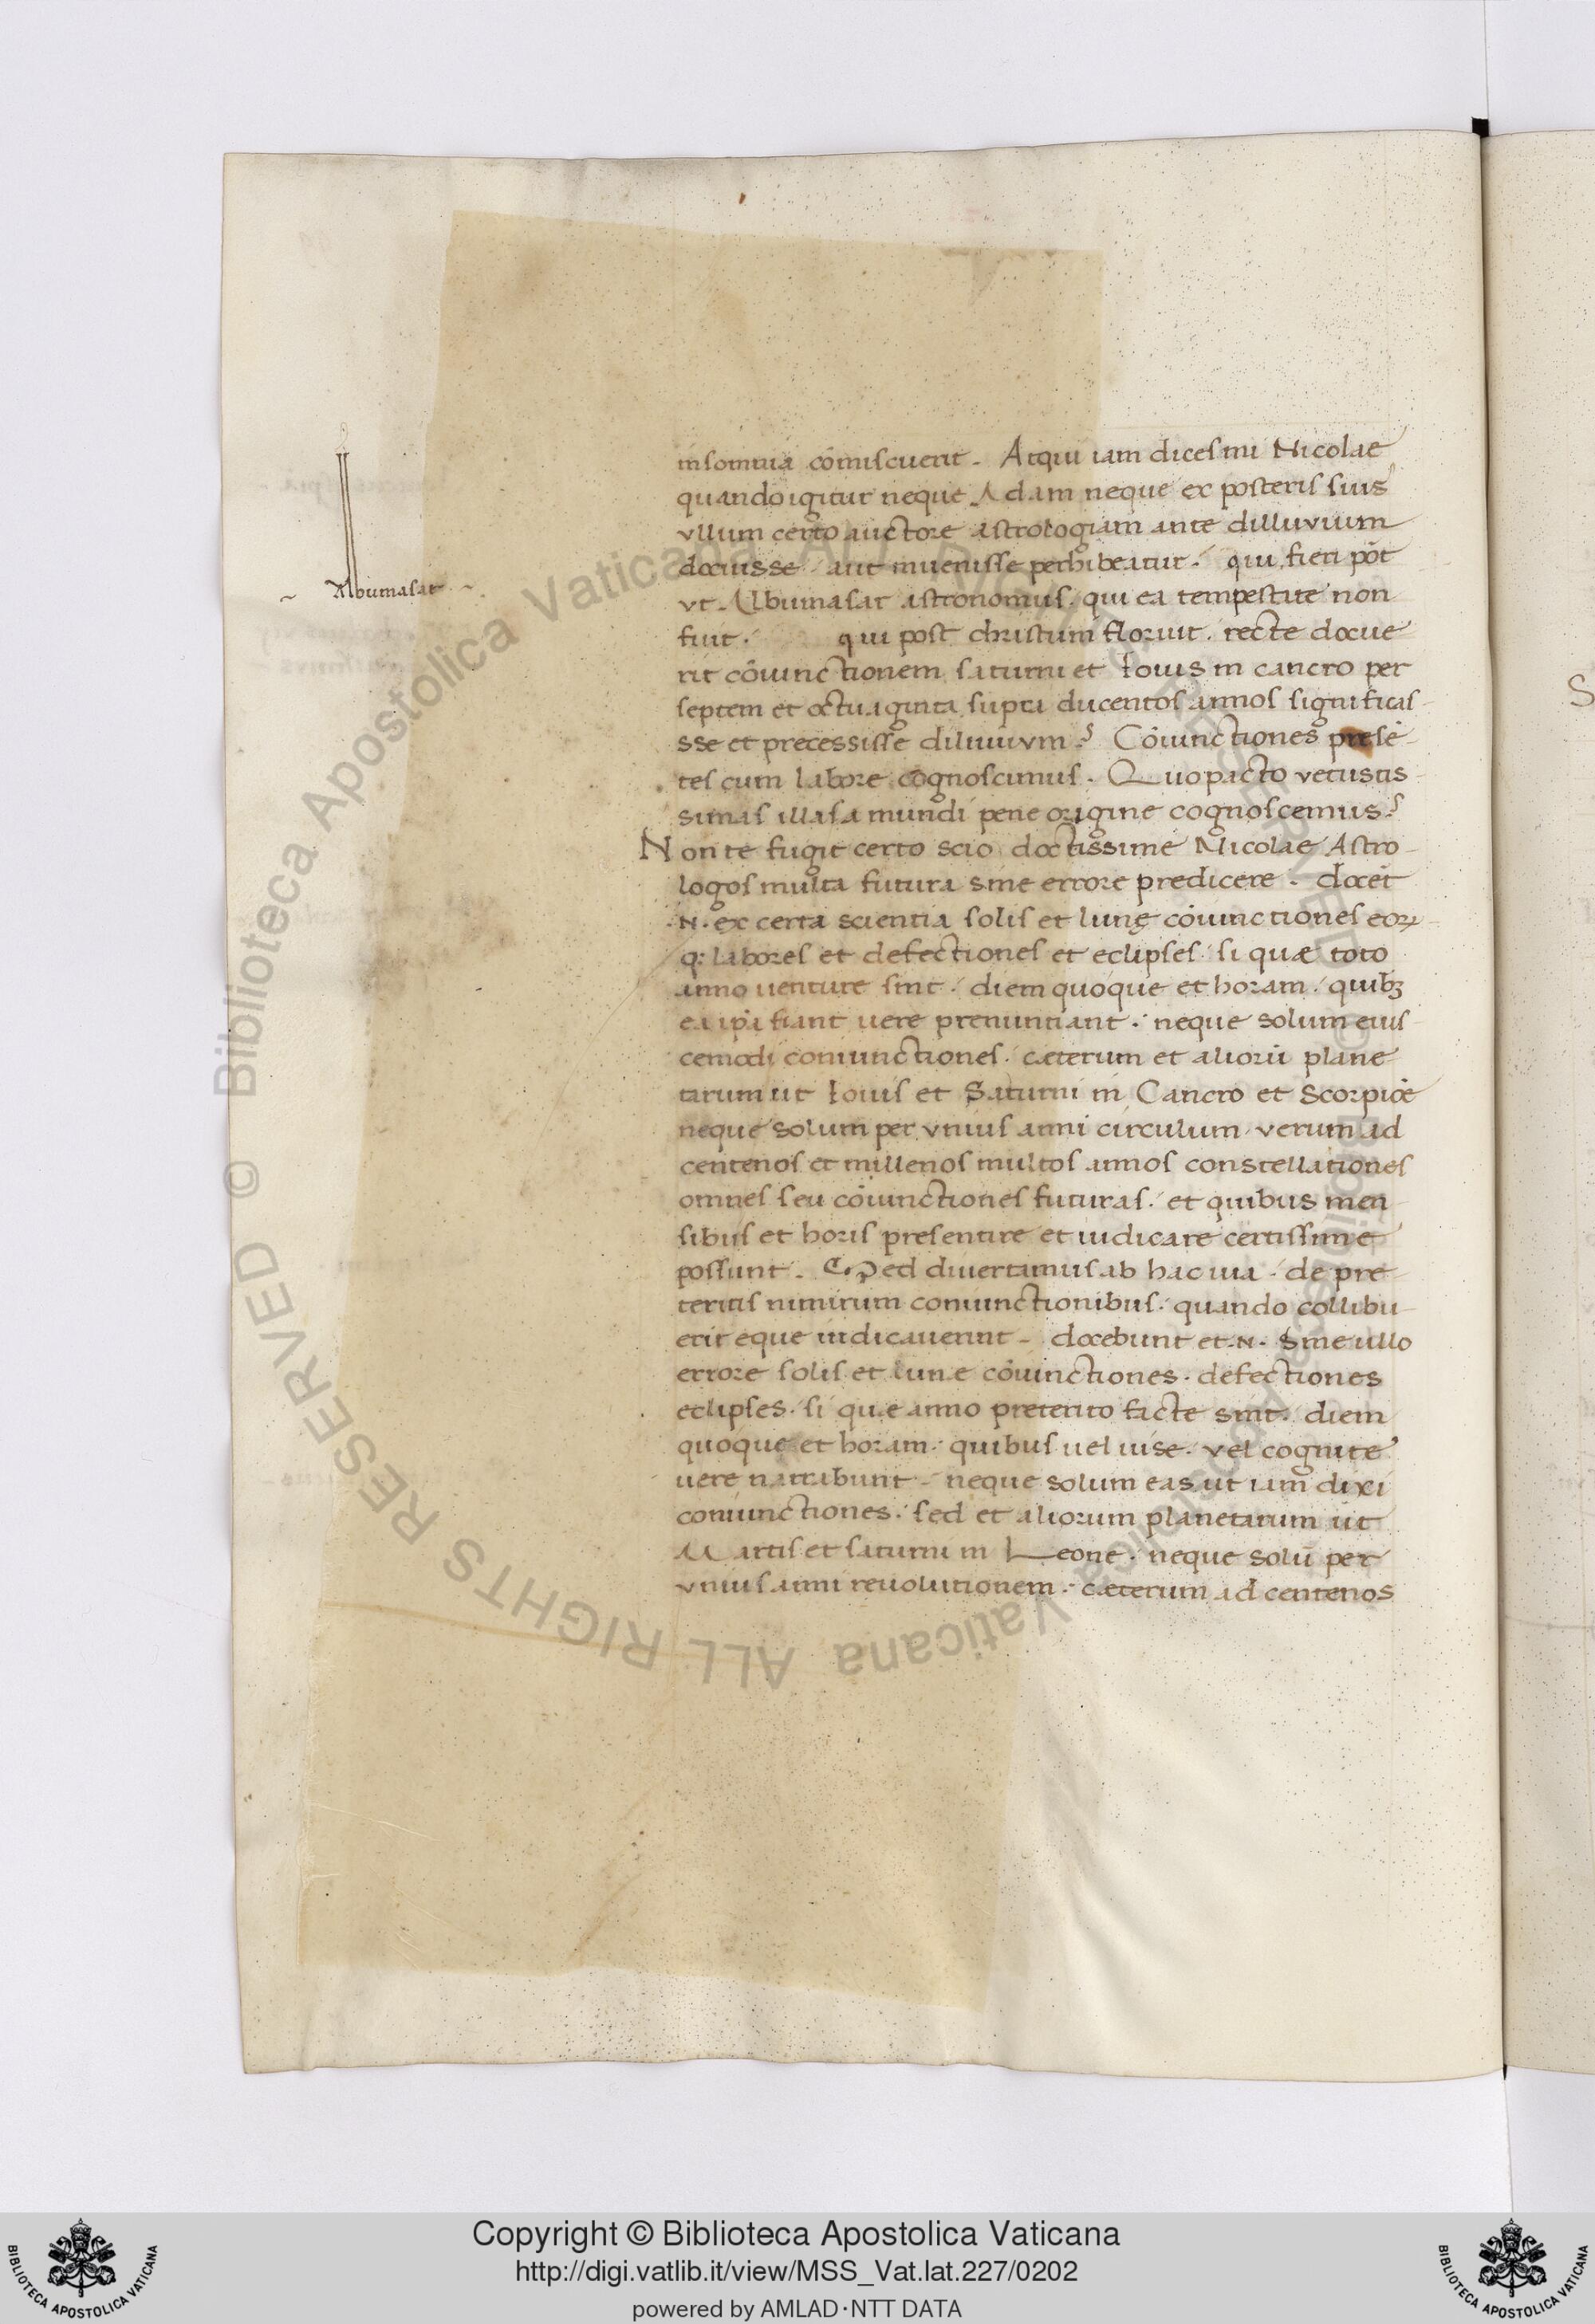 insomnia cōmiscuerit. Atqui iam dices mi Nicolae
quando igitur neque Adam neque ex posteris suis
vllum certo auctore astrologiam ante dilluvium
docuisse aut inuenisse perhibeatur. qui fieri pōt
Albumasar
vt Albumasar astronomus. qui ea tempestate non
fuit. qui post christum floruit. recte docue
rit cōiunctionem saturni et Iouis in cancro per
septem et octuaginta supra ducentos annos significas
sse et precessisse diluuivm? Cōiunctiones presē
tes cum labore cognoscimus. Quo pacto vetustis
simas illas a mundi pene origine cognoscemus?
Non te fugit certo scio doctissime Nicolae Astro
logos multa futura sine errore predicere. docēt
.N. ex certa scientia solis et lunę cōiunctiones eoꝝ
q: labores et defectiones et eclipses si quæ toto
anno uenture sint. diem quoque et horam. quibꝫ
ea ip̄a fiant uere prenuntiant. neque solum eius
cemodi coniunctiones. cæterum et aliorū plane
tarum ut Iouis et Saturni in Cancro et Scorpioe
neque solum per vnius anni circulum verum ad
centenos et millenos multos annos constellationes
omnes seu cōiunctiones futuras. et quibus men
sibus et horis presentire et iudicare certissime
possunt. Sed divertamus ab hac uia. de pre
teritis nimirum coniunctionibus. quando collibu
erit eque iudicauerint. docebunt et .N. Sine ullo
errore solis et lune cōiunctiones. defectiones
eclipses. si quæ anno preterito facte sint. diem
quoque et horam. quibus uel uise. vel cognite
uere narrabunt. neque solum eas ut iam dixi
coniunctiones. sed et aliorum planetarum ut
Martis et saturni in Leone. neque solū per
vnius anni reuolutionem. cæterum ad centenos
© Biblioteca Apostolica Vaticana ALL RIGHTS RESERVED
© Biblioteca Apostolica Vaticana ALL RIGHTS RESERVED
Copyright © Biblioteca Apostolica Vaticana
http://digi.vatlib.it/view/MSS_Vat.lat.227/0202
powered by AMLAD·NTT DATA
BIBLIOTECA APOSTOLICA VATICANA
BIBLIOTECA APOSTOLICA VATICANA